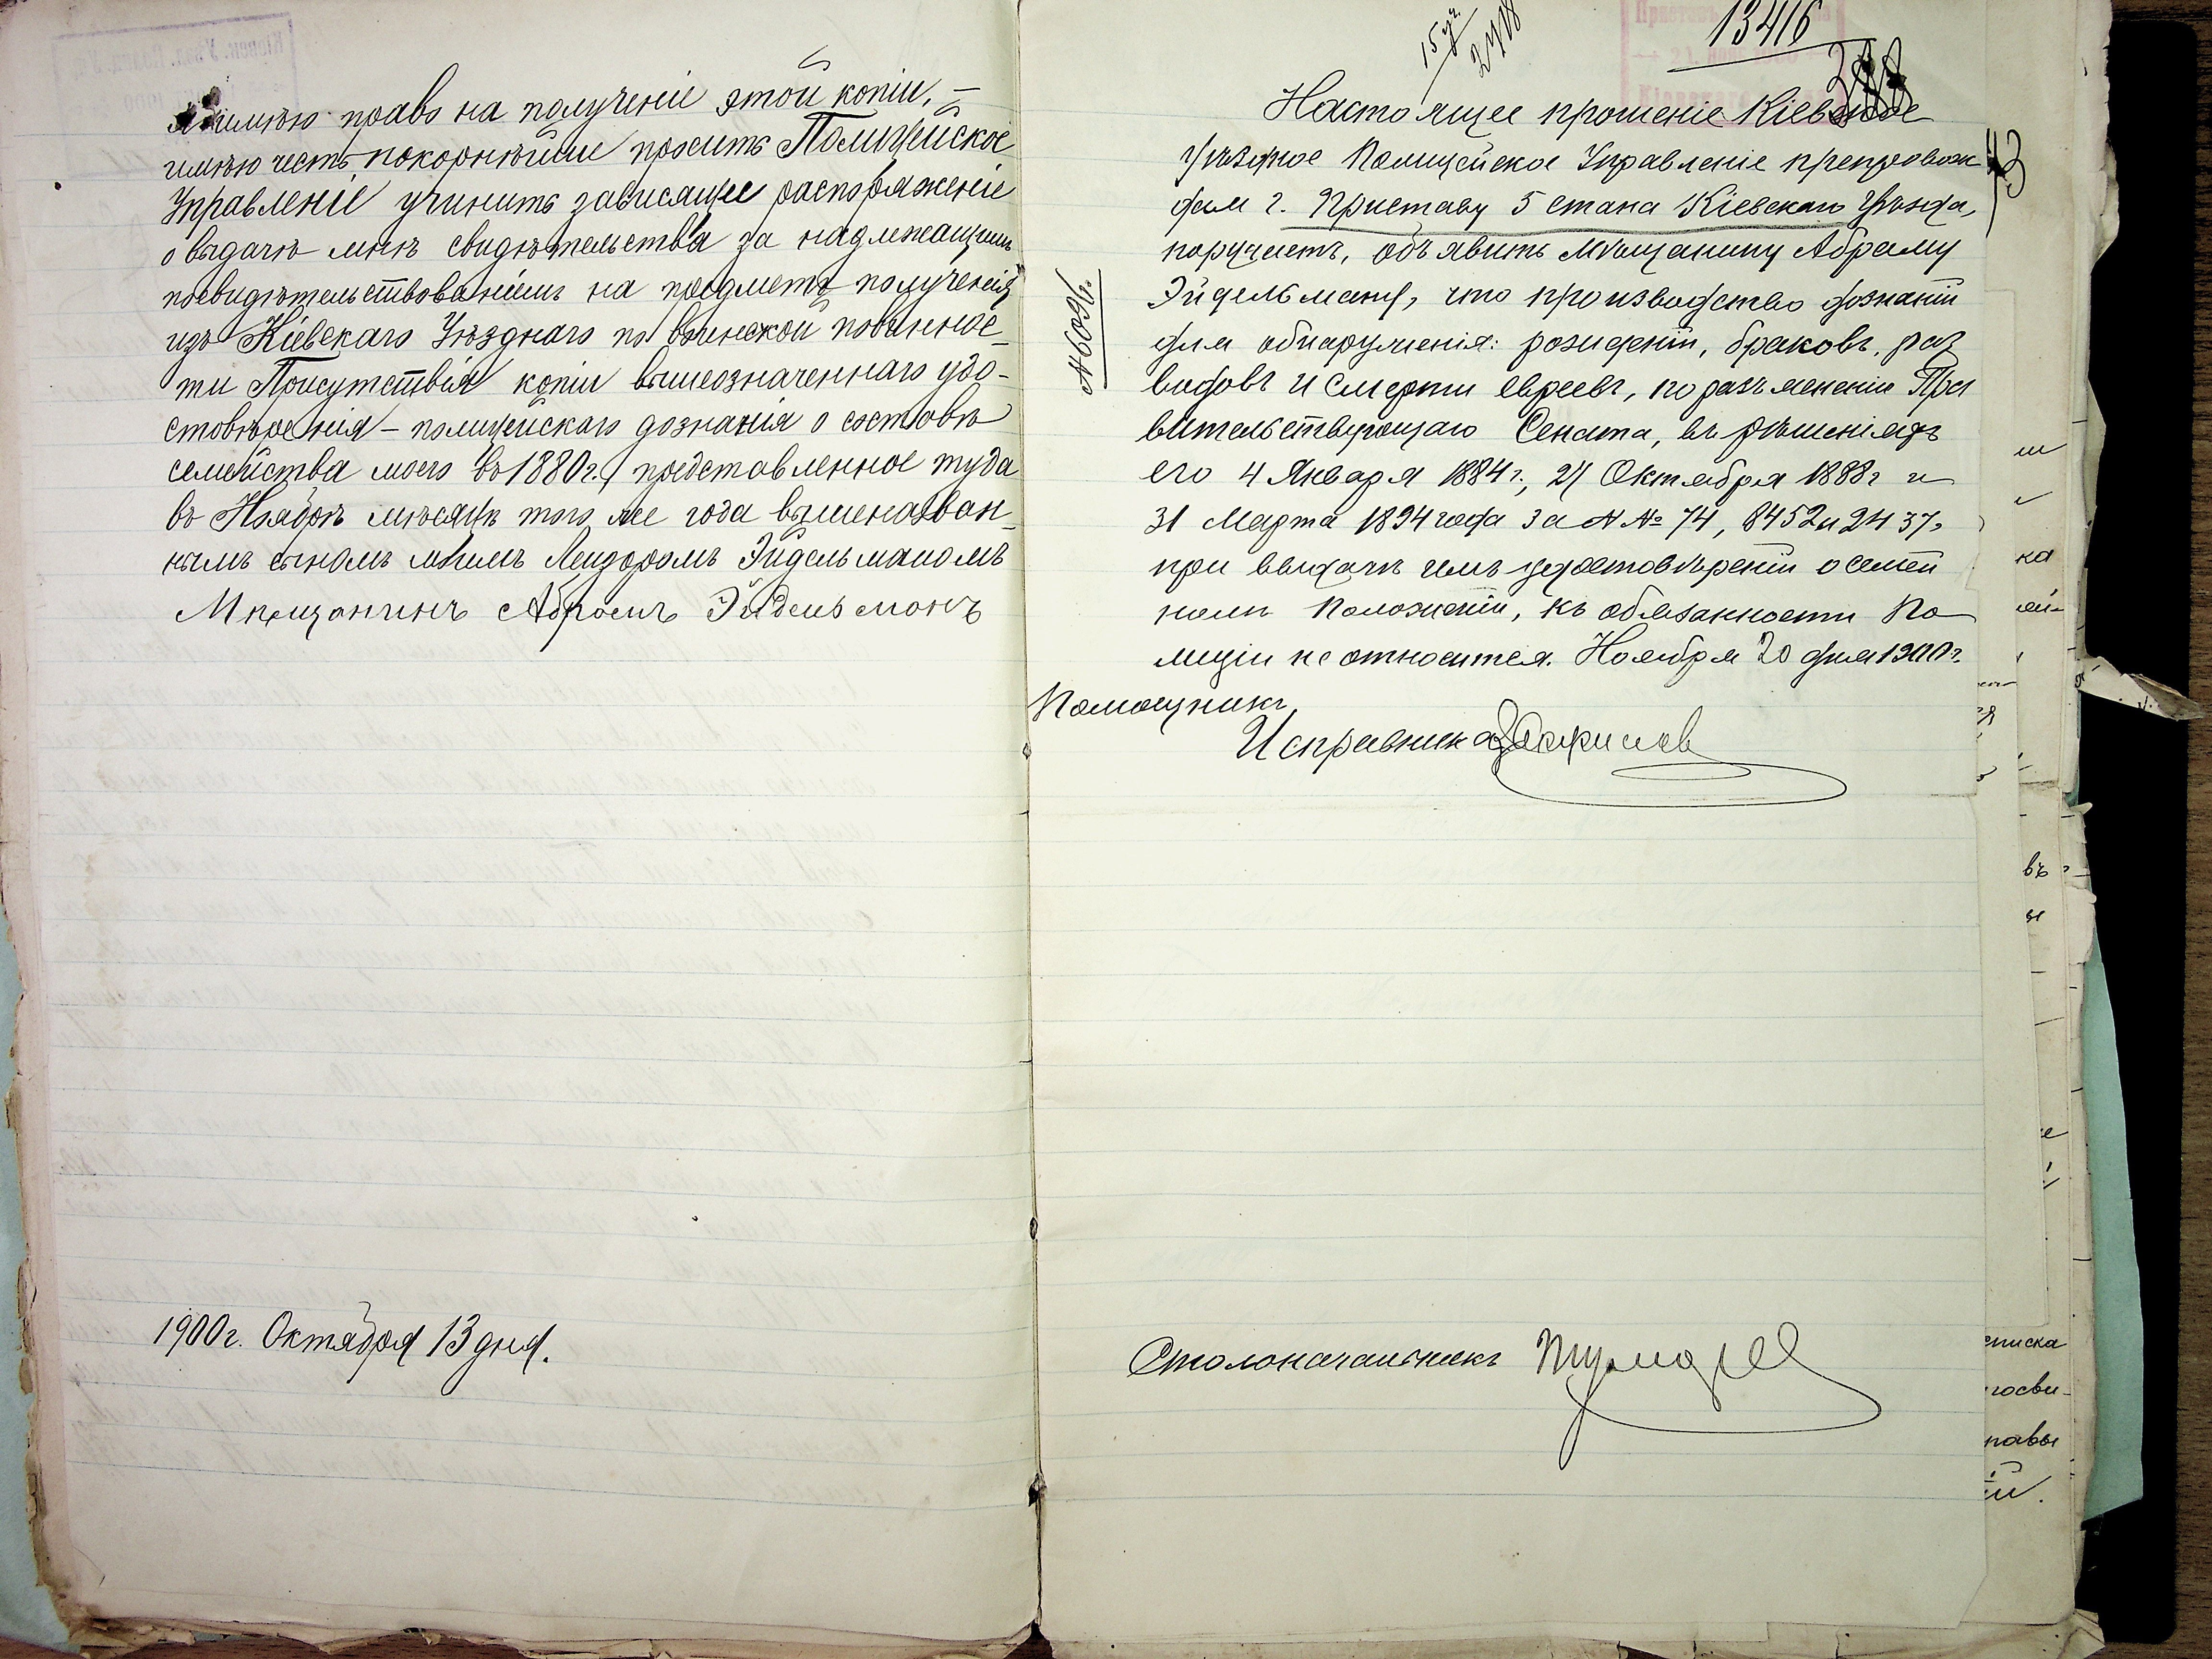 имѣю право на полученіе этой копіи, —
имѣю честь покорнѣйше просить Полицейское
Управленіе учинить зависящее распоряженіе
о выдачѣ мнѣ свидѣтельства за надлежащимъ
посвидѣтельствованіемъ на предметъ полученія
изъ Кіевскаго Уѣзднаго по воинской повиннос-
ти Присутствія копіи вышеозначеннаго удо-
стовѣренія – полицейскаго дознанія о составѣ
семейства моего въ 1880 г., представленное туда
въ Ноябрѣ мѣсяцѣ того же года вышеназван-
нымъ сыномъ моимъ Лейзоромъ Эйдельманомъ
Мѣщанинъ Абрамъ Эйдельманъ
1900 г. Октября 13 дня.
13416
Настоящее прошеніе Кіевское
Уѣздное Полицейское Управленіе препровож
дая г. Приставу 5 стана Кіевскаго Уѣзда,
поручаетъ, объявить Мѣщанину Абраму
Эйдельману, что производство дознаній
для обнаруженія: рожденій, браковъ, раз
водовъ и смерти евреевъ, по разъясненію Пра
вительствующаго Сената, въ рѣшеніяхъ
его 4 Января 1884 г., 24 Октября 1888 г и
31 Марта 1894 года за № № 74, 8452 и 2437,
при выдачѣ имъ удостовѣреній о семей
номъ положеніи, къ обязанности По
лиціи не относится. Ноября 20 дня 1900 г.
№ 6096.
Помощникъ
Исправника
Столоначальникъ